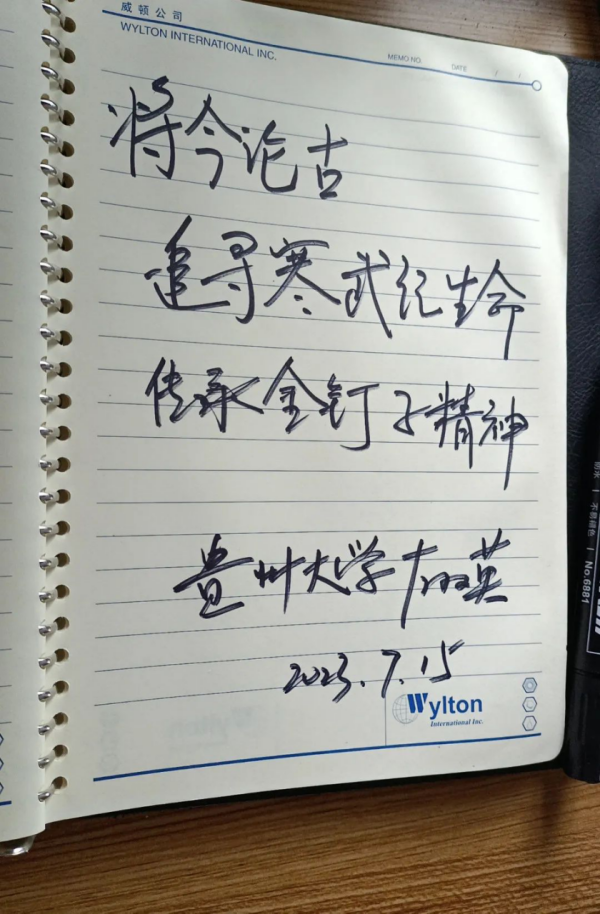 威顿公司
WYLTON INTERNATIONAL INC.
MEMO NO.
DATE / /
将今论古
追寻寒武纪生命
传承金钉子精神
贵州大学 英
2023.7.15
Wylton
International Inc.
不易褪色 | No.6881